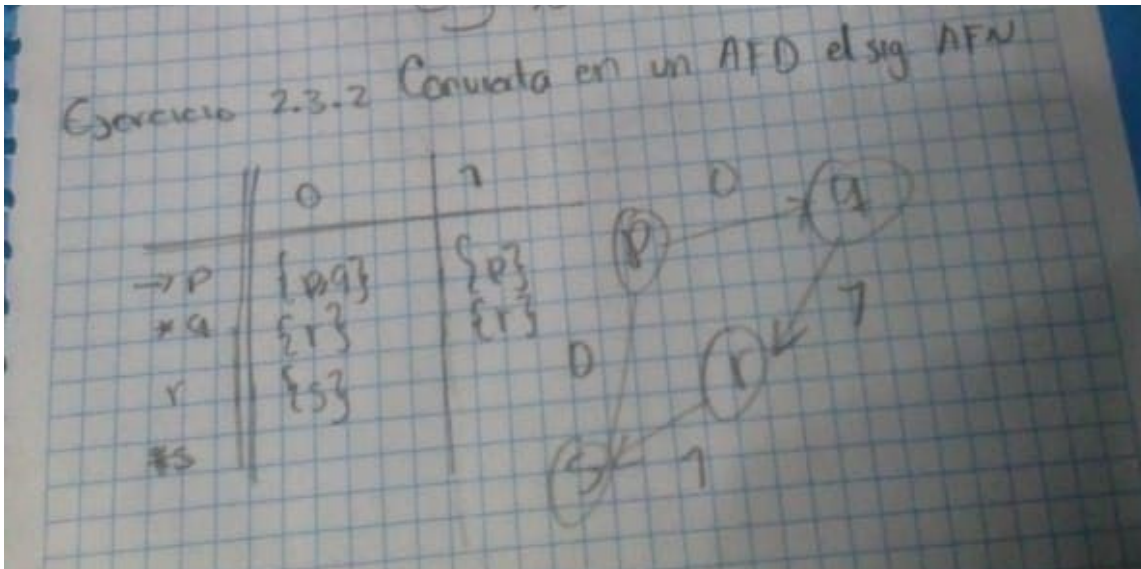 Ejercicio 2.3.2 Convierta en un AFD el sig AFN
0 1
→p {p,q} {p}
*q {r} {r}
r {s}
*s
p 0 q
1
0 r
s 1